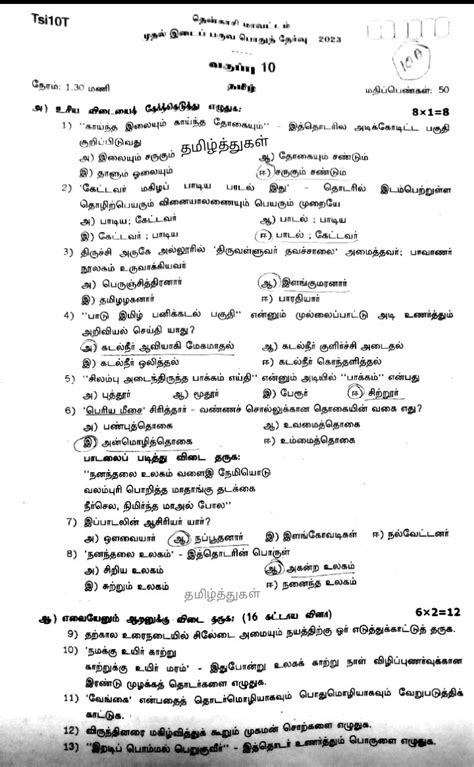 Tsi10T
தென்காசி மாவட்டம்
முதல் இடைப் பருவ பொதுத் தேர்வு 2023
வகுப்பு 10
10A
நேரம்: 1.30 மணி தமிழ் மதிப்பெண்கள்: 50
அ) உரிய விடையைத் தேர்ந்தெடுத்து எழுதுக: 8×1=8
1) "காய்ந்த இலையும் காய்ந்த தோகையும்" - இத்தொடரில் அடிக்கோடிட்ட பகுதி
குறிப்பிடுவது
தமிழ்த்துகள்
அ) இலையும் சருகும் ஆ) தோகையும் சண்டும்
இ) தாளும் ஓலையும் ஈ) சருகும் சண்டும்
2) 'கேட்டவர் மகிழப் பாடிய பாடல் இது' - தொடரில் இடம்பெற்றுள்ள
தொழிற்பெயரும் வினையாலணையும் பெயரும் முறையே
அ) பாடிய; கேட்டவர் ஆ) பாடல் ; பாடிய
இ) கேட்டவர் ; பாடிய ஈ) பாடல் ; கேட்டவர்
3) திருச்சி அருகே அல்லூரில் 'திருவள்ளுவர் தவச்சாலை' அமைத்தவர்; பாவாணர்
நூலகம் உருவாக்கியவர்
அ) பெருஞ்சித்திரனார் ஆ) இளங்குமரனார்
இ) தமிழழகனார் ஈ) பாரதியார்
4) "பாடு இமிழ் பனிக்கடல் பகுதி" என்னும் முல்லைப்பாட்டு அடி உணர்த்தும்
அறிவியல் செய்தி யாது?
அ) கடல்நீர் ஆவியாகி மேகமாதல் ஆ) கடல்நீர் குளிர்ச்சி அடைதல்
இ) கடல்நீர் ஒலித்தல் ஈ) கடல்நீர் கொந்தளித்தல்
5) "சிலம்பு அடைந்திருந்த பாக்கம் எய்தி" என்னும் அடியில் "பாக்கம்" என்பது
அ) புத்தூர் ஆ) மூதூர் இ) பேரூர் ஈ) சிற்றூர்
6) 'பெரிய மீசை' சிரித்தார் - வண்ணச் சொல்லுக்கான தொகையின் வகை எது?
அ) பண்புத்தொகை ஆ) உவமைத்தொகை
இ) அன்மொழித்தொகை ஈ) உம்மைத்தொகை
பாடலைப் படித்து விடை தருக:
"நனந்தலை உலகம் வளைஇ நேமியொடு
வலம்புரி பொறித்த மாதாங்கு தடக்கை
நீர்செல, நிமிர்ந்த மாஅல் போல"
7) இப்பாடலின் ஆசிரியர் யார்?
அ) ஔவையார் ஆ) நப்பூதனார் இ) இளங்கோவடிகள் ஈ) நல்வேட்டனர்
8) 'நனந்தலை உலகம்' - இத்தொடரின் பொருள்
அ) சிறிய உலகம் ஆ) அகன்ற உலகம்
இ) சுற்றும் உலகம் ஈ) நனைந்த உலகம்
தமிழ்த்துகள்
ஆ) எவையேனும் ஆறனுக்கு விடை தருக: (16 கட்டாய வினா) 6×2=12
9) தற்கால உரைநடையில் சிலேடை அமையும் நயத்திற்கு ஓர் எடுத்துக்காட்டுத் தருக.
10) 'நமக்கு உயிர் காற்று
காற்றுக்கு உயிர் மரம்' - இதுபோன்று உலகக் காற்று நாள் விழிப்புணர்வுக்கான
இரண்டு முழக்கத் தொடர்களை எழுதுக.
11) 'வேங்கை' என்பதைத் தொடர்மொழியாகவும் பொதுமொழியாகவும் வேறுபடுத்திக்
காட்டுக.
12) விருந்தினரை மகிழ்வித்துக் கூறும் முகமன் சொற்களை எழுதுக.
13) "இறடிப் பொம்மல் பெறுகுவிர்" - இத்தொடர் உணர்த்தும் பொருளை எழுதுக.